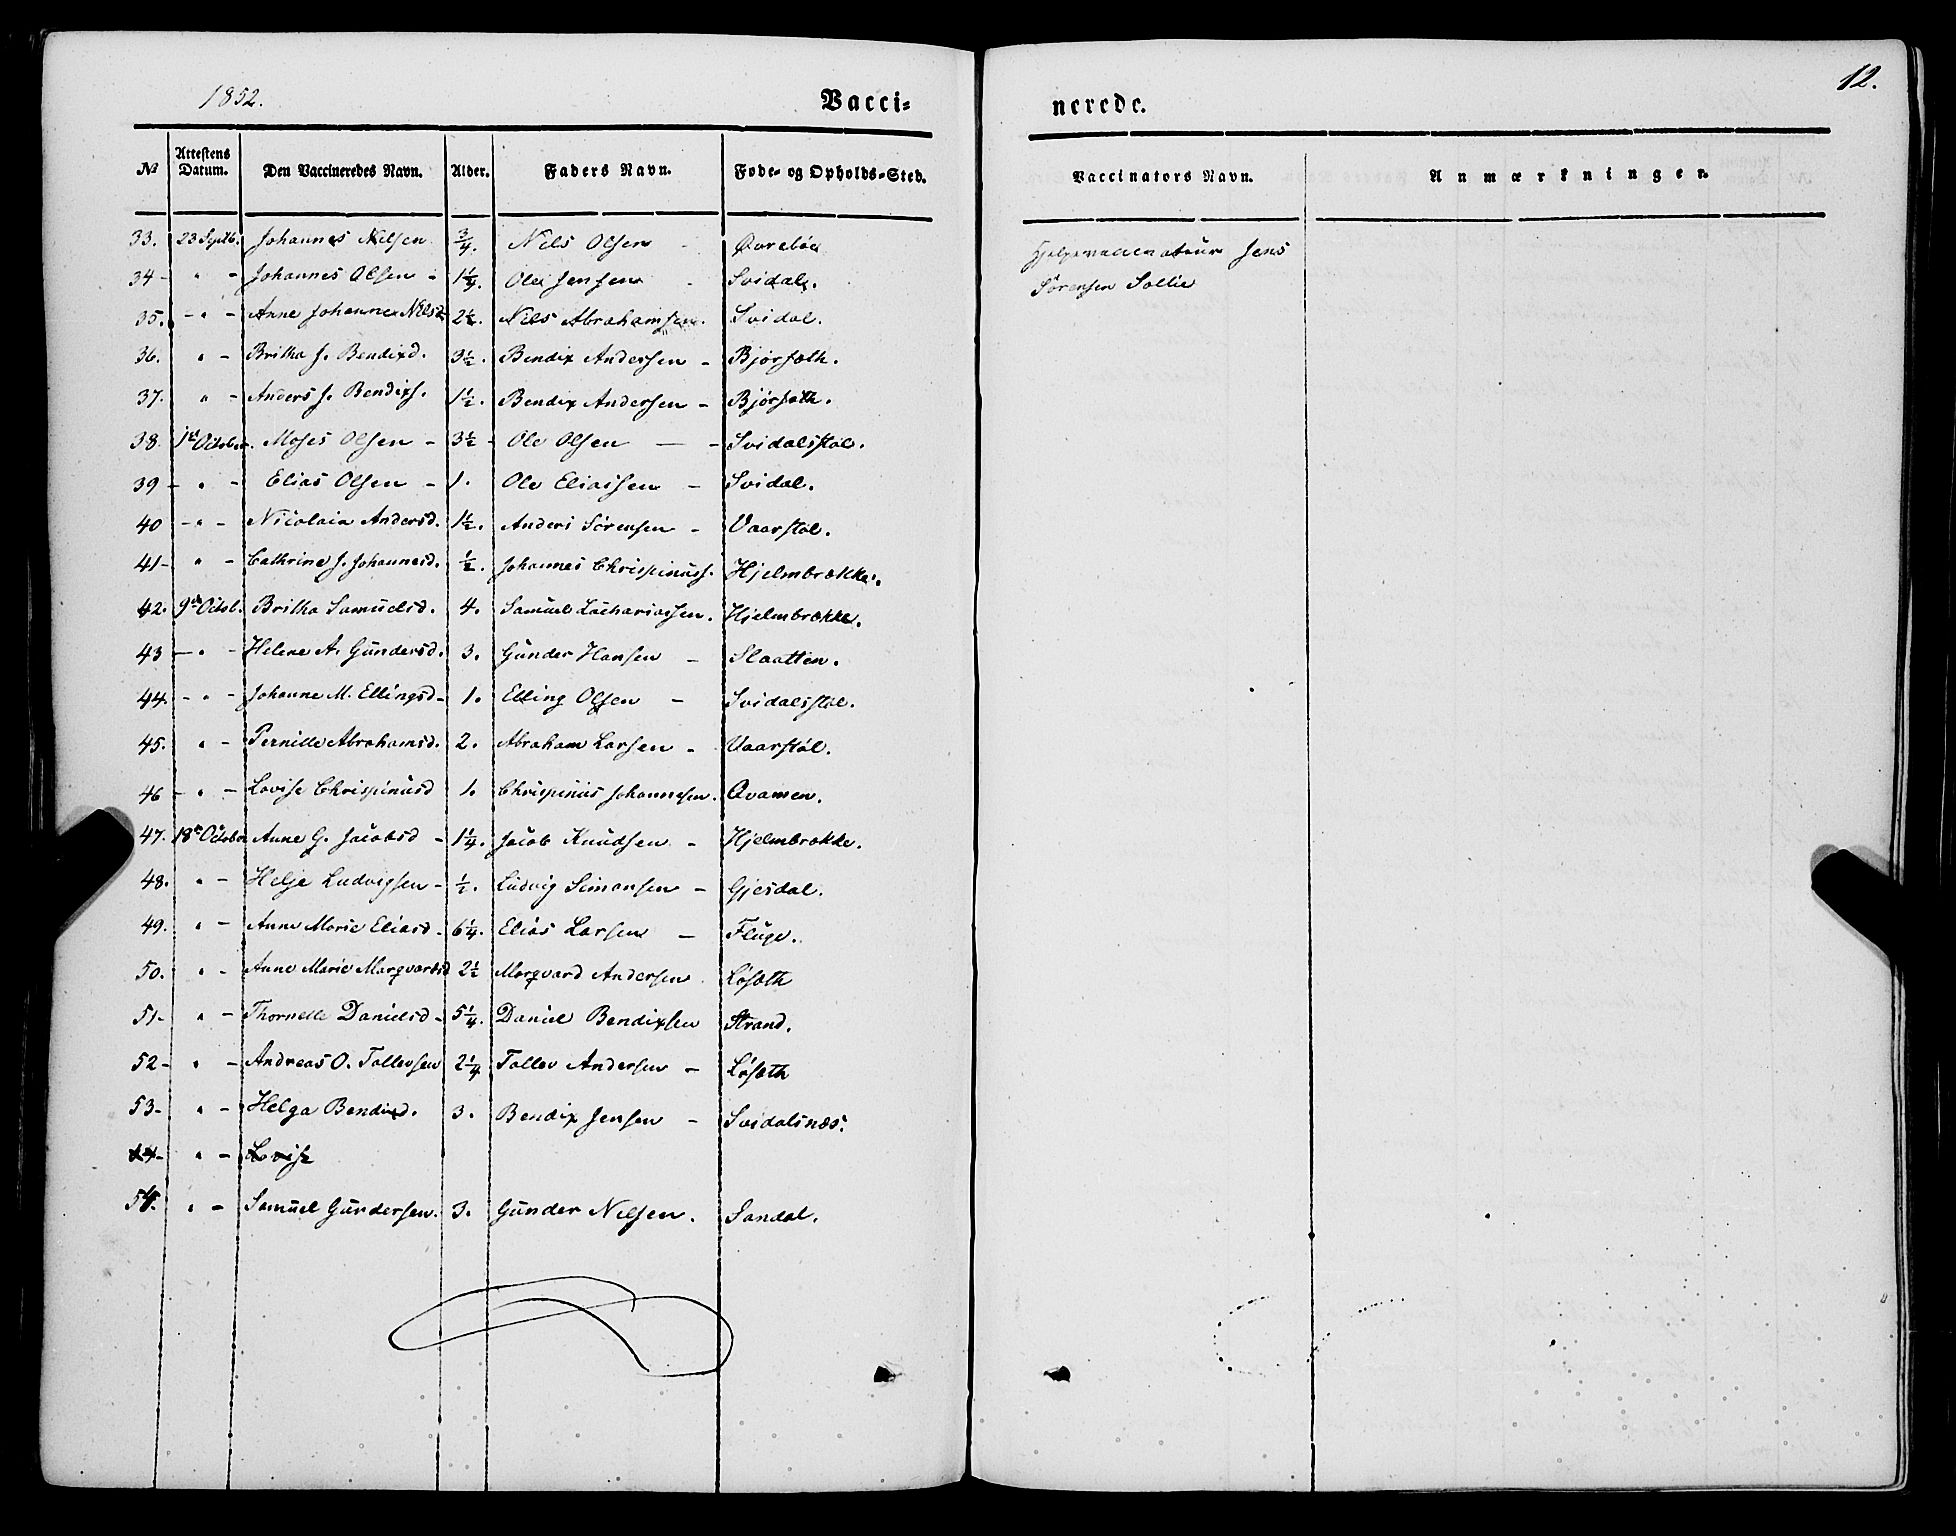 1852.
Vacci-
nerede.
12.
№ Attestens Datum. Den Vaccineredes Navn. Alder. Faders Navn. Føde- og Opholds-Sted. Vaccinators Navn. Anmærkninger.
33. 23 Septb. Johannes Nilsen ¾. Nils Olsen - Øvrebøe Hjelpevaccinateur Jens
34 - " - Johannes Olsen - 1¼. Ole Jensen - Svidal. Sørensen Sollie
35. - " - Anne Johanne Nilsd 2½. Nils Abrahamsen. Svidal.
36. " - Britha J. Bendixd. 3½. Bendix Andersen - Bjørsæth.
37. " - Anders J. Bendixs. 1½. Bendix Andersen - Bjørsæth.
38. 1st October. Moses Olsen - 3½ - Ole Olsen — - Svidalsstøl.
39 - " - Elias Olsen - 1. Ole Eliassen - Svidal.
40 - " - Nicolaia Andersd. 1½. Anders Sørensen - Vaarstøl.
41 - " - Cathrine J. Johannesd. ½. Johannes Chrispinuss. Hjelmbrække.
42. 9de Octob. Britha Samuelsd. 4. Samuel Zachariassen. Hjelmbrække.
43 — " - Helene A. Gundersd. 3. Gunder Hansen - Slaatten.
44. - " - Johanne M. Ellingsd - 1. Elling Olsen - Svidalsstøl.
45. " - Pernille Abrahamsd. 2. Abraham Larsen - Vaarstøl.
46 - " - Lovise Chrispinusd 1. Chrispinus Johannesen. Qvamen.
47. 18de October Anne G. Jacobsd - 1¼. Jacob Knudsen - Hjelmbrække.
48. " - Helje Ludvigsen - ½. Ludvig Simonsen - Gjesdal.
49. " - Anne Marie Eliasd - 6¼. Elias Larsen - Fluge.
50. " - Anne Marie Marqvardsd 2½ Marqvard Andersen Løsæth
51 - " - Thornelle Danielsd - 5¼. Daniel Bendixsen Strand.
52 - " - Andreas O. Tollevsen 2¼ Tollev Andersen - Løsæth
53 - " - Helga Bendixd. 3. Bendix Jensen - Svidalsnæs.
54 - " - Lovise
54. " - Samuel Gundersen. 3. Gunder Nilsen. Sandal.